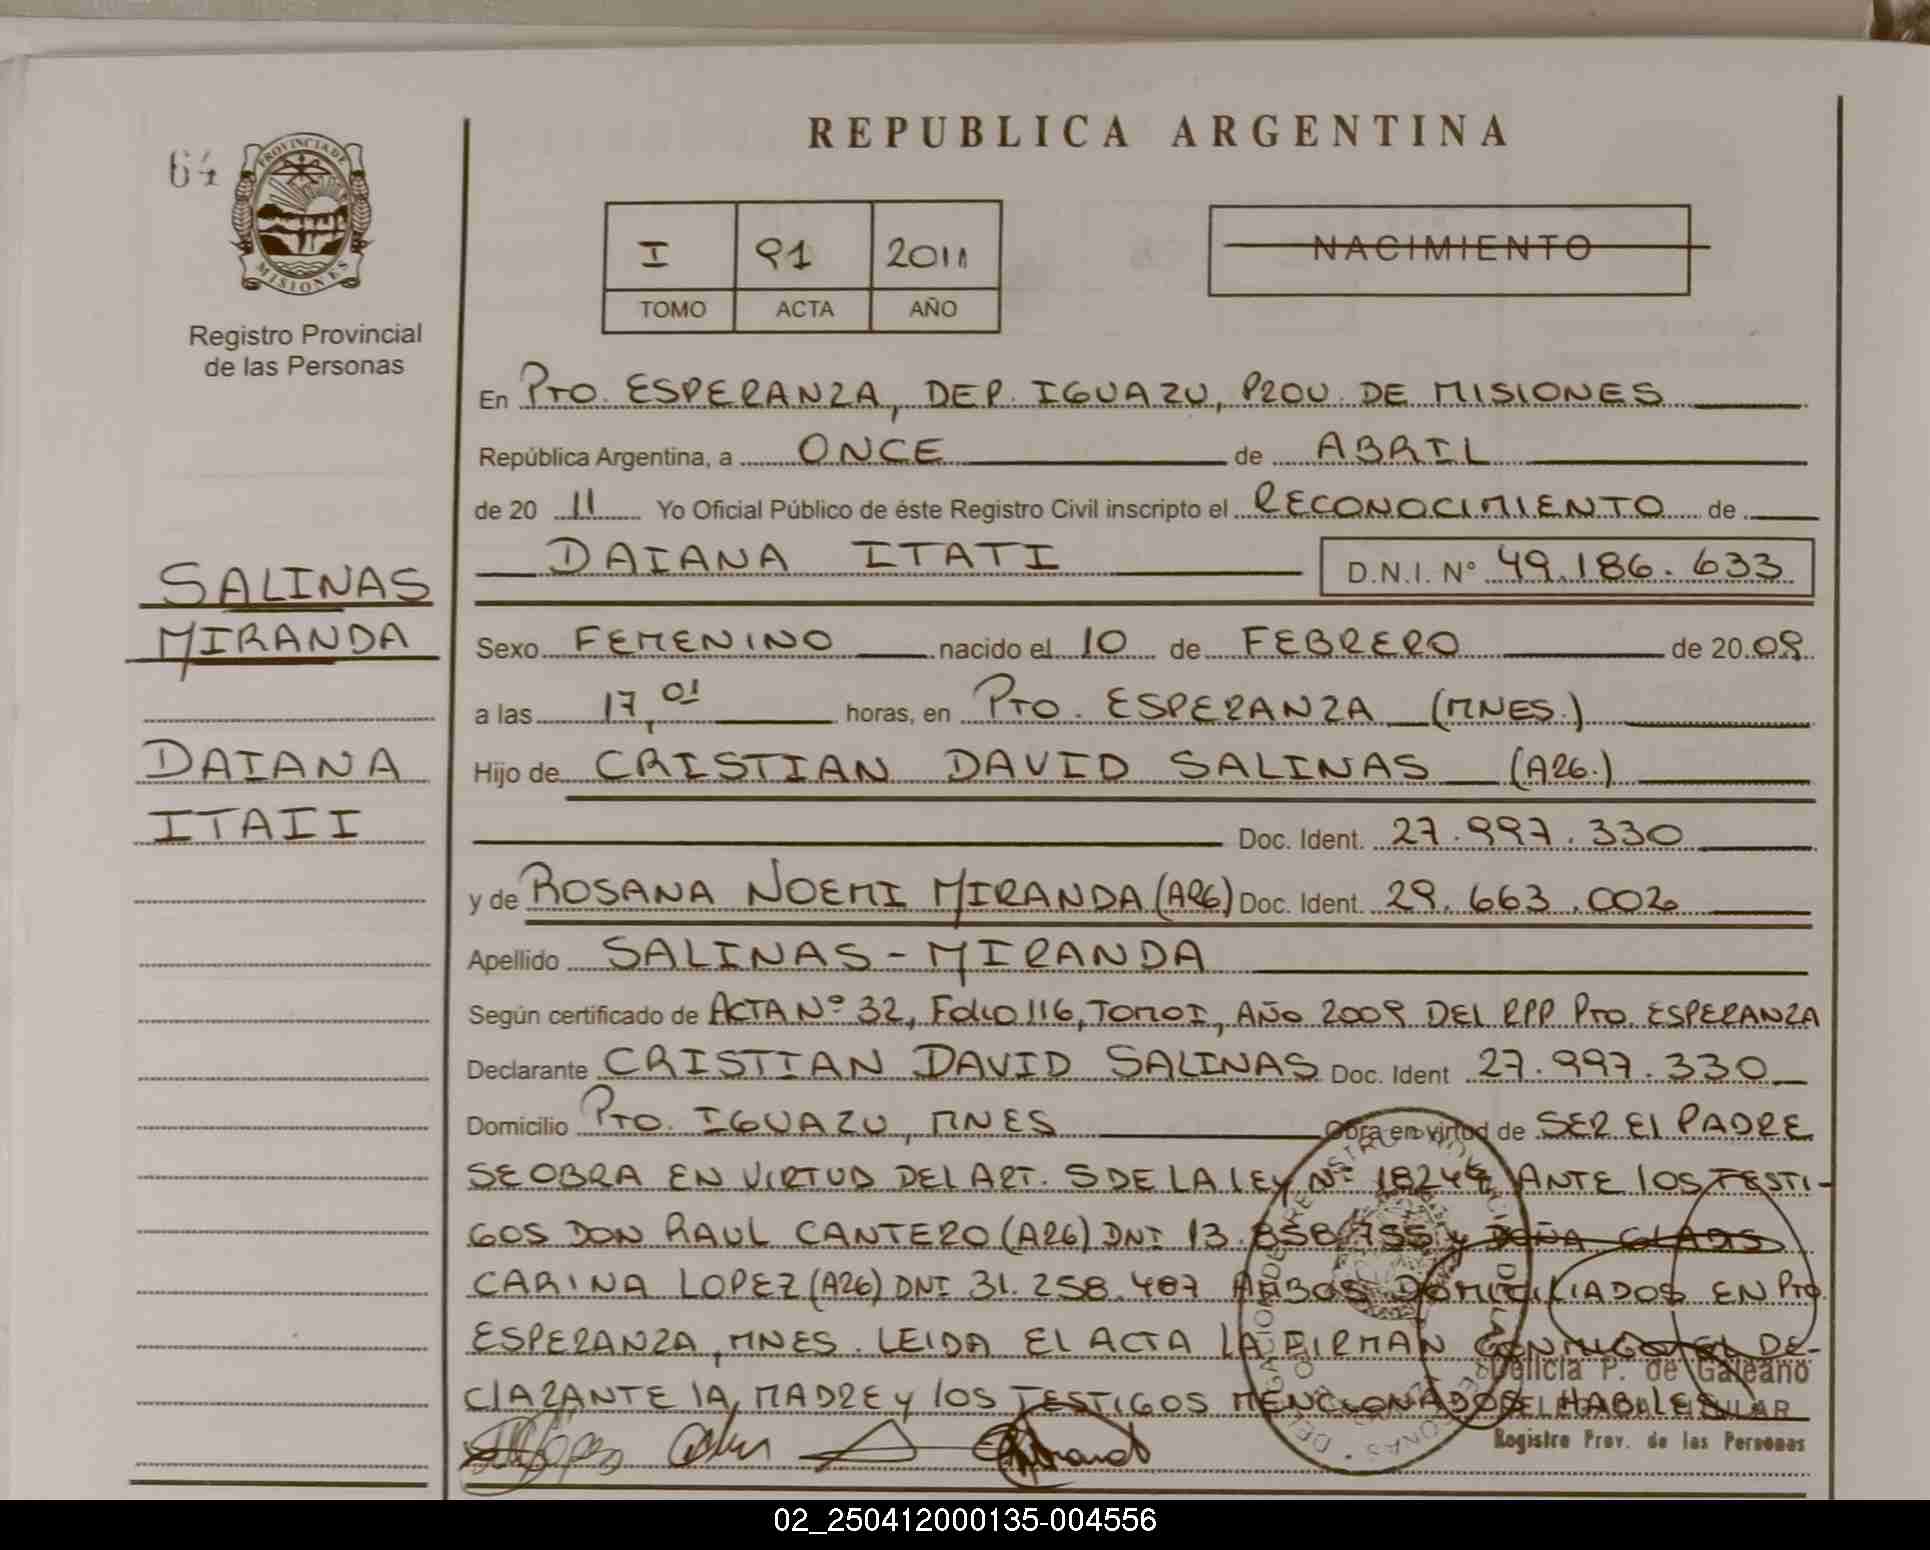 REPUBLICA ARGENTINA
64
PROVINCIA DE
MISIONES
Registro Provincial
de las Personas
I 91 2011
TOMO ACTA AÑO
NACIMIENTO
En PTO. ESPERANZA, DEP. IGUAZU, PROV. DE MISIONES
República Argentina, a ONCE de ABRIL
de 20 11 Yo Oficial Público de éste Registro Civil inscripto el RECONOCIMIENTO de
DAIANA ITATI D.N.I. N° 49.186.633
SALINAS
MIRANDA
DAIANA
ITATI
Sexo FEMENINO nacido el 10 de FEBRERO de 2009
a las 17,01 horas, en PTO. ESPERANZA (MNES.)
Hijo de CRISTIAN DAVID SALINAS (ARG.)
Doc. Ident. 27.997.330
y de ROSANA NOEMI MIRANDA (ARG) Doc. Ident. 29.663.002
Apellido SALINAS - MIRANDA
Según certificado de ACTA N° 32, Folio 116, TOMO I, AÑO 2009 DEL RPP PTO. ESPERANZA
Declarante CRISTIAN DAVID SALINAS Doc. Ident 27.997.330
Domicilio PTO. IGUAZU, MNES Obra en virtud de SER El PADRE
SE OBRA EN VIRTUD DEL ART. 5 DE LA LEY N° 18248 ANTE lOS TESTI-
GOS DON RAUL CANTERO (ARG) DNI 13.858.755 y DOÑA GLADIS
CARINA LOPEZ (ARG) DNI 31.258.487 AMBOS DOMICILIADOS EN PTO.
ESPERANZA, MNES. LEIDA EL ACTA LA FIRMAN CONMIGO El DE-
ClARANTE lA MADRE y lOS TESTIGOS MENCIONADOS HABILES
Delicia P. de Galeano
Registro Prov. de las Personas
02_250412000135-004556